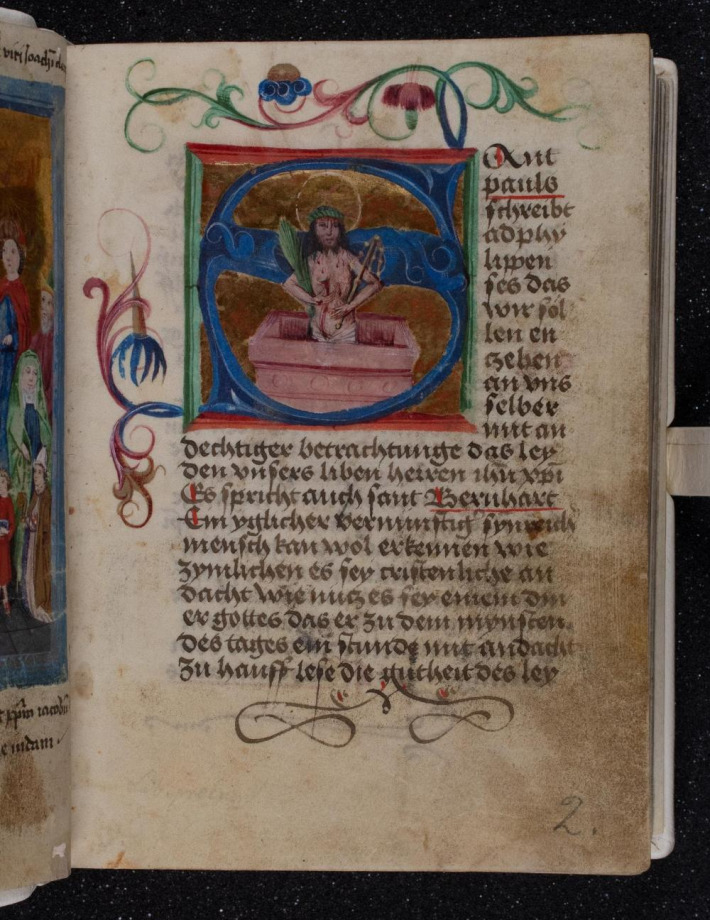 viri Joachi
Ant
pauls
schreibt
ad phy
lippen
ses das
wir sol
len en
czehen
an vns
selber
mit an
dechtiger betrachtunge das ley
den vnsers liben herren ihu xpi
Es spricht auch sant Bernhart
Ein yglicher vernunftig synreich
mensch kan wol erkennen wie
zymlichen es sey cristenliche an
dacht wie nucz es sey einem din
er gottes das er zu dem mynsten
des tages ein stunde mit andacht
zu hauff lese die gutheit des ley
2.